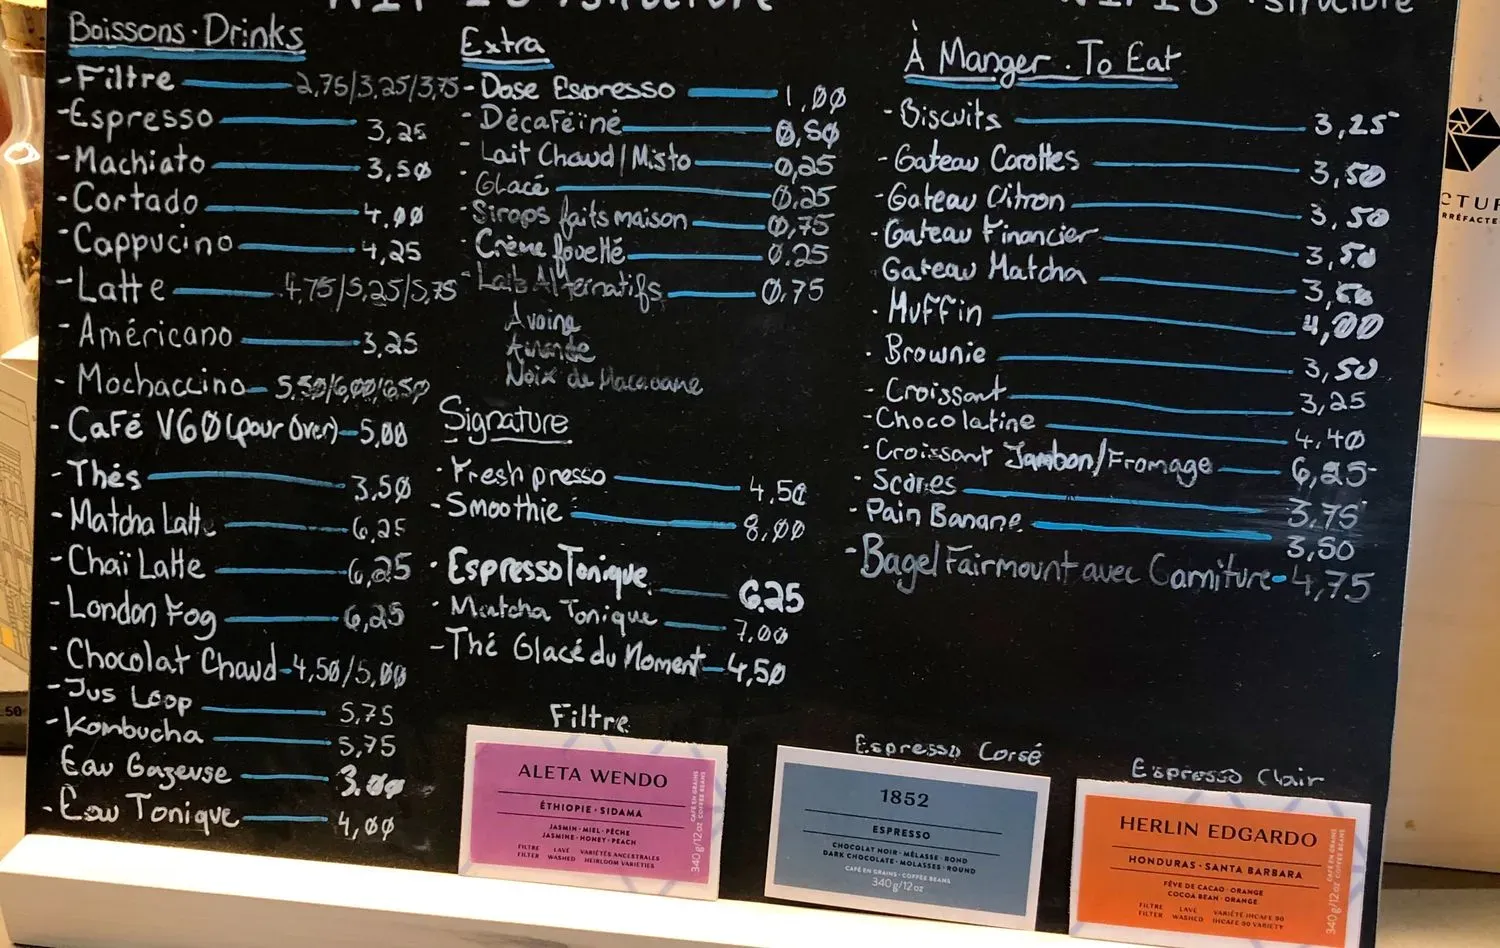 Boissons · Drinks
- Filtre 2,75/3,25/3,75
- Espresso 3,25
- Machiato 3,50
- Cortado 4,00
- Cappucino 4,25
- Latte 4,75/5,25/5,75
- Américano 3,25
- Mochaccino 5.50/6,00/6.50
- Café V60 (pour over) 5,00
- Thés 3,50
- Matcha Latte 6,25
- Chaï Latte 6,25
- London Fog 6,25
- Chocolat Chaud 4,50/5,00
- Jus Loop 5,75
- Kombucha 5,75
Eau Gazeuse 3.00
- Eau Tonique 4,00
Extra
- Dose Espresso 1,00
- Décaféiné 0,50
- Lait Chaud/Misto 0,25
- Glacé 0,25
- Sirops faits maison 0,75
- Crème fouetté 0.25
- Laits Alternatifs 0,75
Avoine
Amande
Noix de Macadame
Signature
- Fresh presso 4,50
- Smoothie 8,00
· Espresso Tonique 6.25
· Matcha Tonique 7,00
- Thé Glacé du Moment 4,50
À Manger · To Eat
- Biscuits 3,25
- Gateau Carottes 3,50
- Gateau Citron 3,50
- Gateau Financier 3,50
Gateau Matcha 3,50
· Muffin 4,00
· Brownie 3,50
- Croissant 3,25
- Chocolatine 4.40
- Croissant Jambon/Fromage 6,25
- Scones 3.75
- Pain Banane 3,50
- Bagel Fairmount avec Garniture 4,75
Filtre
ALETA WENDO
ÉTHIOPIE · SIDAMA
JASMIN · MIEL · PÊCHE
JASMINE · HONEY · PEACH
FILTRE LAVÉ VARIÉTÉS ANCESTRALES
FILTER WASHED HEIRLOOM VARIETIES
CAFÉ EN GRAINS
COFFEE BEANS
340 g/12 oz
Espresso Corsé
1852
ESPRESSO
CHOCOLAT NOIR · MÉLASSE · ROND
DARK CHOCOLATE · MOLASSES · ROUND
CAFÉ EN GRAINS · COFFEE BEANS
340 g/12 oz
Espresso Clair
HERLIN EDGARDO
HONDURAS · SANTA BARBARA
FÈVE DE CACAO · ORANGE
COCOA BEAN · ORANGE
FILTRE LAVÉ VARIÉTÉ IHCAFE 90
FILTER WASHED IHCAFE 90 VARIETY
CAFÉ EN GRAINS
COFFEE BEANS
340 g/12 oz